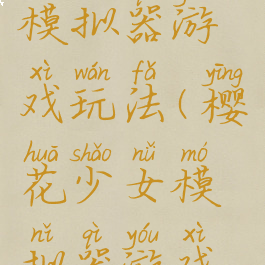 模拟器游
xì wán fǎ yīng
戏玩法(樱
huā shǎo nǚ mó
花少女模
nǐ qì yóu xì
拟器游戏